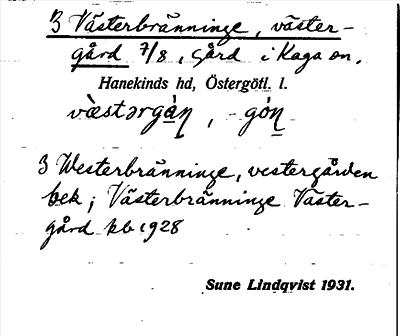 3 Västerbränninge, väster-
gård 7/8, gård i Kaga sn.
Hanekinds hd, Östergötl. l.
væ̀stərgàn̥, -gón̥
3 Westerbränninge, vestergården
bek; Västerbränninge Väster-
gård kb 1928
Sune Lindqvist 1931.